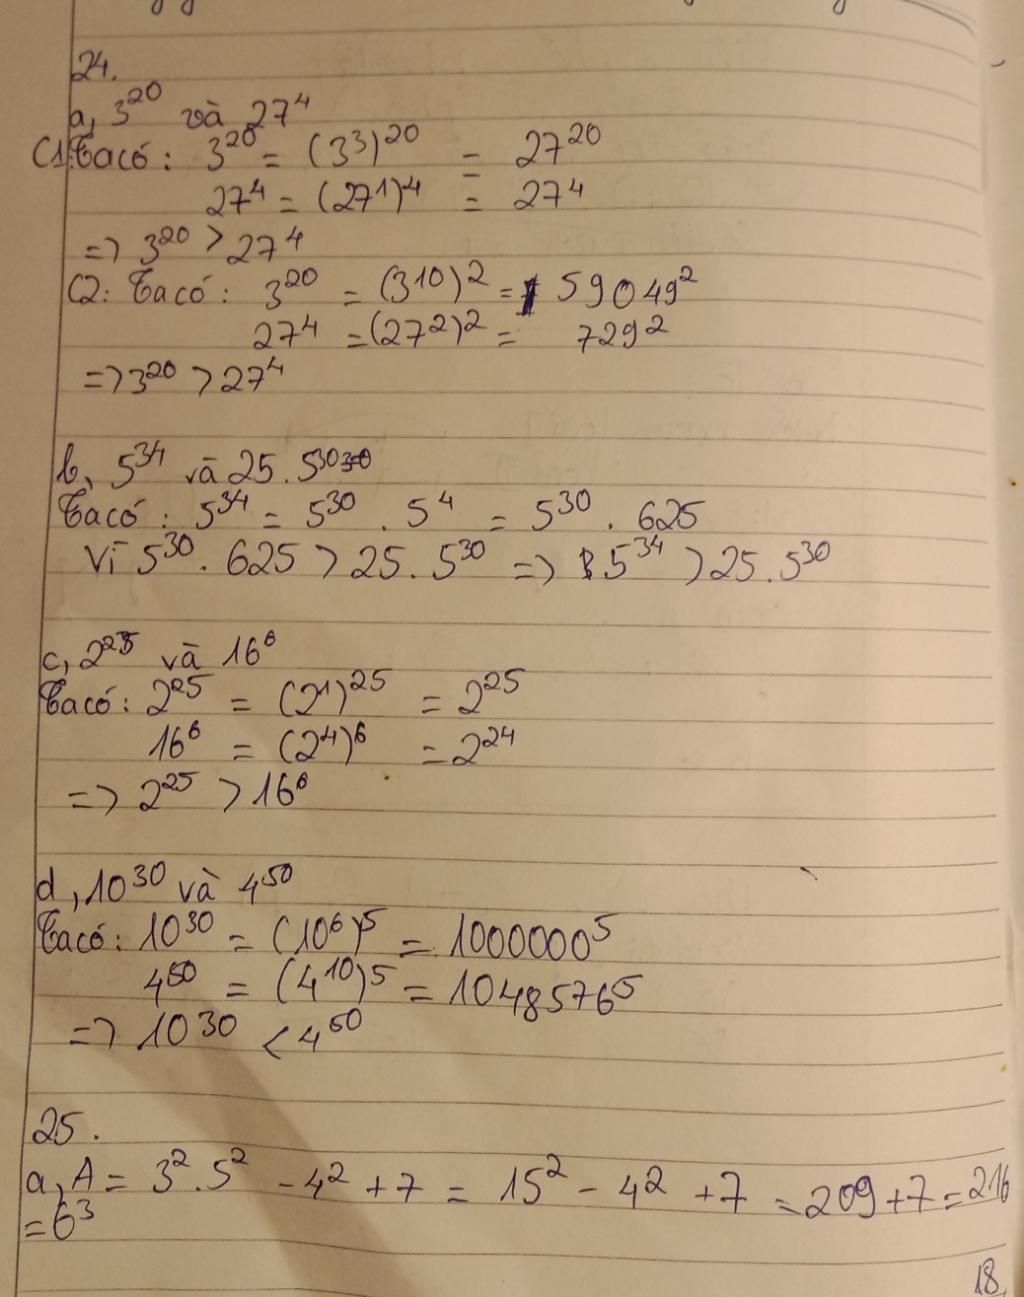 24.
a, 3²⁰ và 27⁴
C1: Ta có: 3²⁰ = (3³)²⁰ = 27²⁰
27⁴ = (27¹)⁴ = 27⁴
=> 3²⁰ > 27⁴
C2: Ta có: 3²⁰ = (3¹⁰)² = 59049²
27⁴ = (27²)² = 729²
=> 3²⁰ > 27⁴
b, 5³⁴ và 25 . 5³⁰
Ta có: 5³⁴ = 5³⁰ . 5⁴ = 5³⁰ . 625
Vì 5³⁰ . 625 > 25 . 5³⁰ => 5³⁴ > 25 . 5³⁰
c, 2²⁵ và 16⁶
Ta có: 2²⁵ = (2¹)²⁵ = 2²⁵
16⁶ = (2⁴)⁶ = 2²⁴
=> 2²⁵ > 16⁶
d, 10³⁰ và 4⁵⁰
Ta có: 10³⁰ = (10⁶)⁵ = 1000000⁵
4⁵⁰ = (4¹⁰)⁵ = 1048576⁵
=> 10³⁰ < 4⁵⁰
25.
a, A = 3² . 5² - 4² + 7 = 15² - 4² + 7 = 209 + 7 = 216
= 6³
18